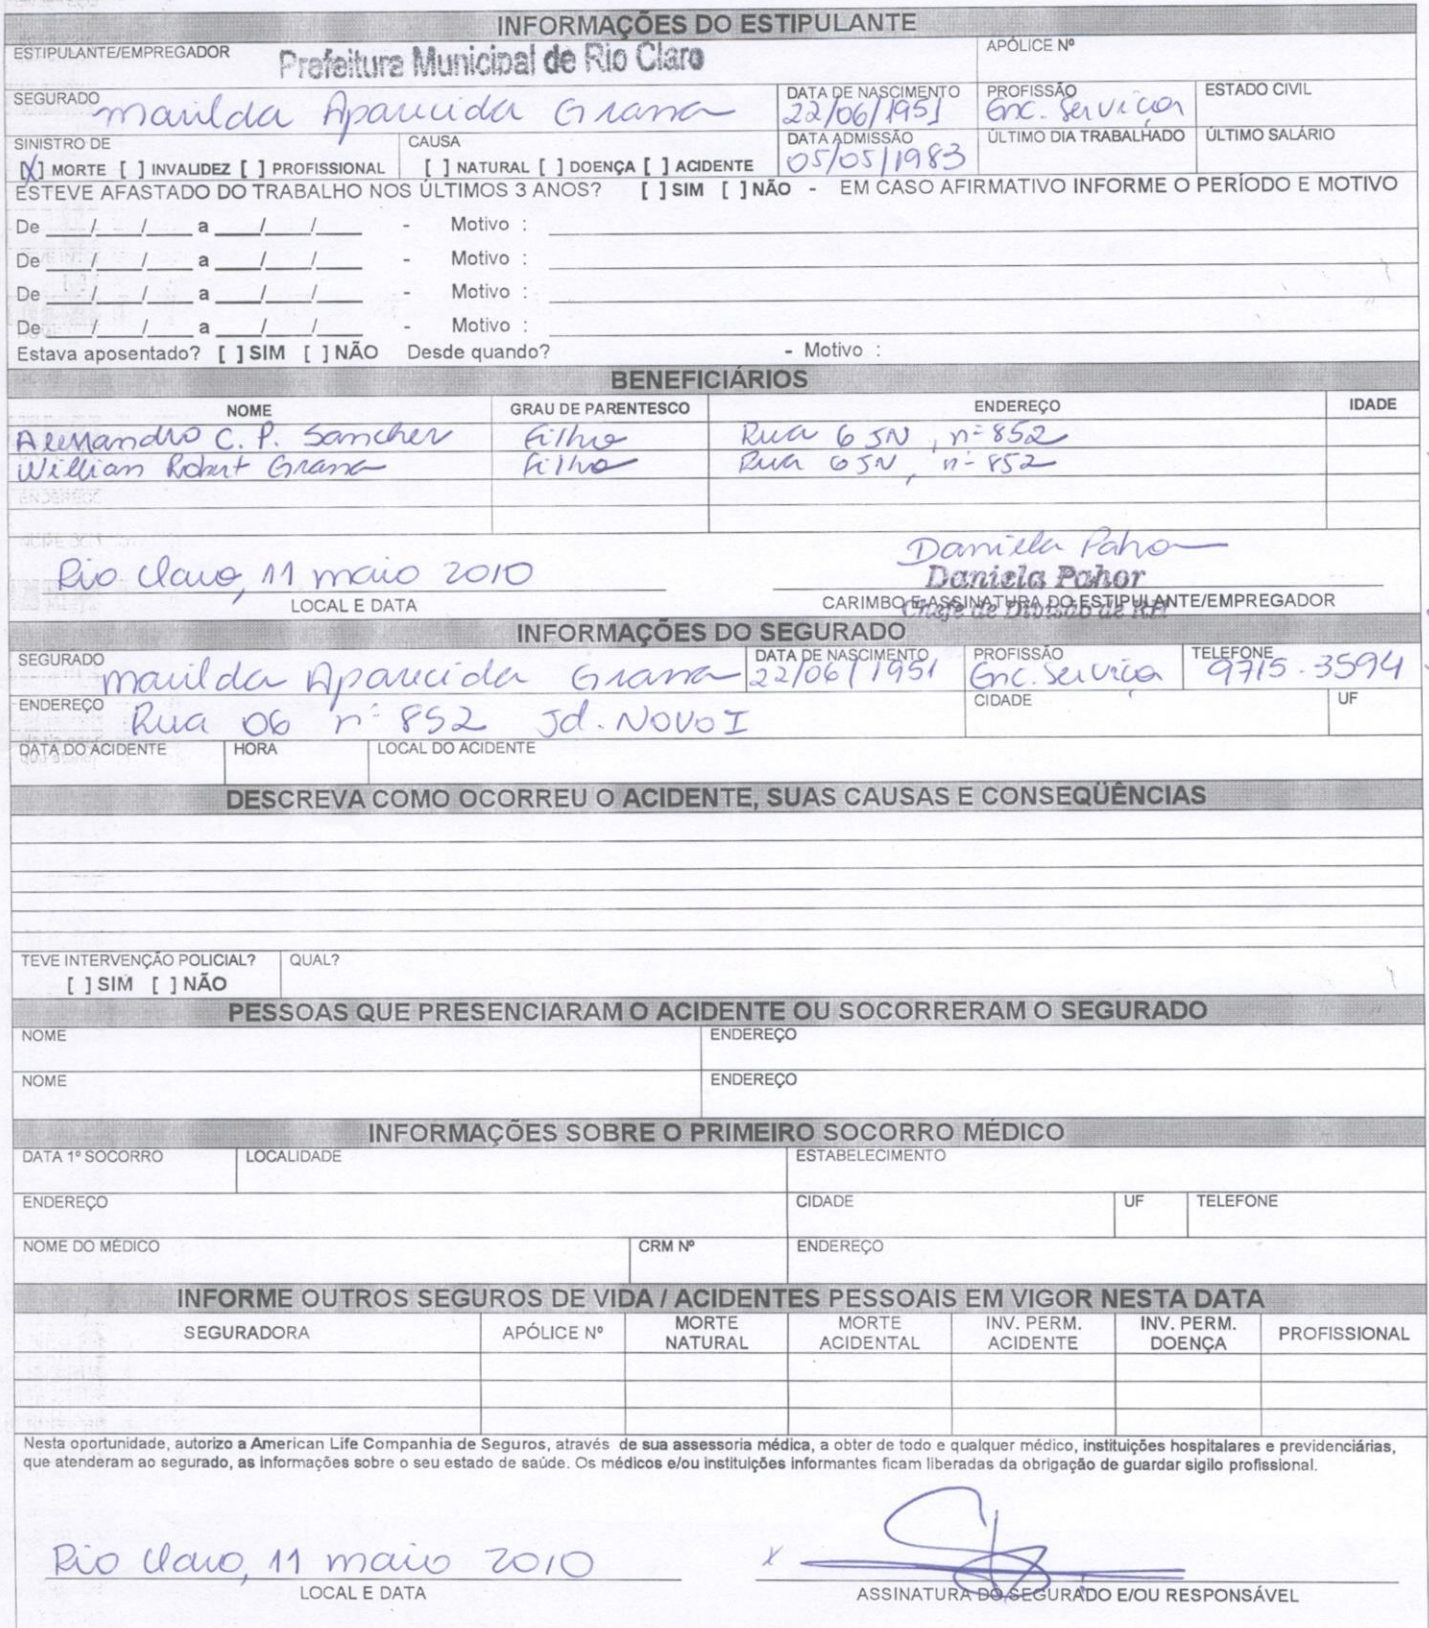 INFORMAÇÕES DO ESTIPULANTE
ESTIPULANTE/EMPREGADOR Prefeitura Municipal de Rio Claro APÓLICE Nº
SEGURADO Marilda Aparecida Grana DATA DE NASCIMENTO 22/06/1951 PROFISSÃO Enc. Serviços ESTADO CIVIL
SINISTRO DE CAUSA DATA ADMISSÃO 05/05/1983 ÚLTIMO DIA TRABALHADO ÚLTIMO SALÁRIO
[X] MORTE [ ] INVALIDEZ [ ] PROFISSIONAL [ ] NATURAL [ ] DOENÇA [ ] ACIDENTE
ESTEVE AFASTADO DO TRABALHO NOS ÚLTIMOS 3 ANOS? [ ] SIM [ ] NÃO - EM CASO AFIRMATIVO INFORME O PERÍODO E MOTIVO
De ___/___/___ a ___/___/___ - Motivo :
De ___/___/___ a ___/___/___ - Motivo :
De ___/___/___ a ___/___/___ - Motivo :
De ___/___/___ a ___/___/___ - Motivo :
Estava aposentado? [ ] SIM [ ] NÃO Desde quando? - Motivo :
BENEFICIÁRIOS
NOME GRAU DE PARENTESCO ENDEREÇO IDADE
Alessandro C. P. Sanches Filho Rua 6 JN, nº 852
Willian Robert Grana Filho Rua 6 JN, nº 852
Rio Claro, 11 maio 2010 Daniela Pahor
Daniela Pahor
LOCAL E DATA CARIMBO E ASSINATURA DO ESTIPULANTE/EMPREGADOR
Chefe de Divisão de RH
INFORMAÇÕES DO SEGURADO
SEGURADO Marilda Aparecida Grana DATA DE NASCIMENTO 22/06/1951 PROFISSÃO Enc. Serviços TELEFONE 9715-3594
ENDEREÇO Rua 06 nº 852 Jd. Novo I CIDADE UF
DATA DO ACIDENTE HORA LOCAL DO ACIDENTE
DESCREVA COMO OCORREU O ACIDENTE, SUAS CAUSAS E CONSEQÜÊNCIAS
TEVE INTERVENÇÃO POLICIAL? QUAL?
[ ] SIM [ ] NÃO
PESSOAS QUE PRESENCIARAM O ACIDENTE OU SOCORRERAM O SEGURADO
NOME ENDEREÇO
NOME ENDEREÇO
INFORMAÇÕES SOBRE O PRIMEIRO SOCORRO MÉDICO
DATA 1º SOCORRO LOCALIDADE ESTABELECIMENTO
ENDEREÇO CIDADE UF TELEFONE
NOME DO MÉDICO CRM Nº ENDEREÇO
INFORME OUTROS SEGUROS DE VIDA / ACIDENTES PESSOAIS EM VIGOR NESTA DATA
SEGURADORA APÓLICE Nº MORTE NATURAL MORTE ACIDENTAL INV. PERM. ACIDENTE INV. PERM. DOENÇA PROFISSIONAL
Nesta oportunidade, autorizo a American Life Companhia de Seguros, através de sua assessoria médica, a obter de todo e qualquer médico, instituições hospitalares e previdenciárias,
que atenderam ao segurado, as informações sobre o seu estado de saúde. Os médicos e/ou instituições informantes ficam liberadas da obrigação de guardar sigilo profissional.
Rio Claro, 11 maio 2010 x
LOCAL E DATA ASSINATURA DO SEGURADO E/OU RESPONSÁVEL